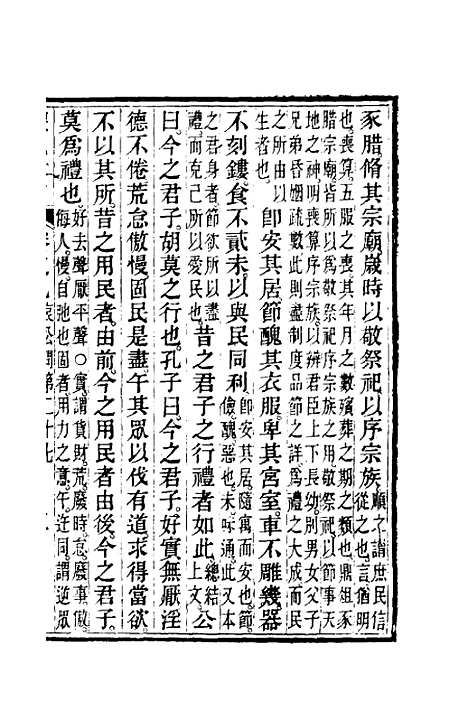 豕腊脩其宗廟歲時以敬祭祀以序宗族順之謂庶民信
從之也言偕明
也喪算五服之喪其年月之數殯葬之期之類也鼎俎豕
腊宗廟皆所以為敬祭祀序宗族之用敬祭祀以節事天
地之神明喪算序宗族以辨君臣上下長幼別男女父子
兄弟昏姻疏數則盡制度品節之詳為禮之大成而民
之所由以
生者也即安其居節醜其衣服卑其宮室車不雕幾器
不刻鏤食不貳未以與民同利即安其居隨寓而安也節
儉醜惡也未味通此又本
之君身者節欲所以盡
禮而克己所以愛民也昔之君子之行禮者如此總結
上文公
曰今之君子胡莫之行也孔子曰今之君子好實無厭淫
德不倦荒怠傲慢固民是盡午其眾以伐有道求得當欲
不以其所昔之用民者由前今之用民者由後今之君子
莫為禮也好去聲厭平聲○實謂貨財荒廢時怠廢事傲
每人慢自弛也固者用力之意午迕同謂逆眾